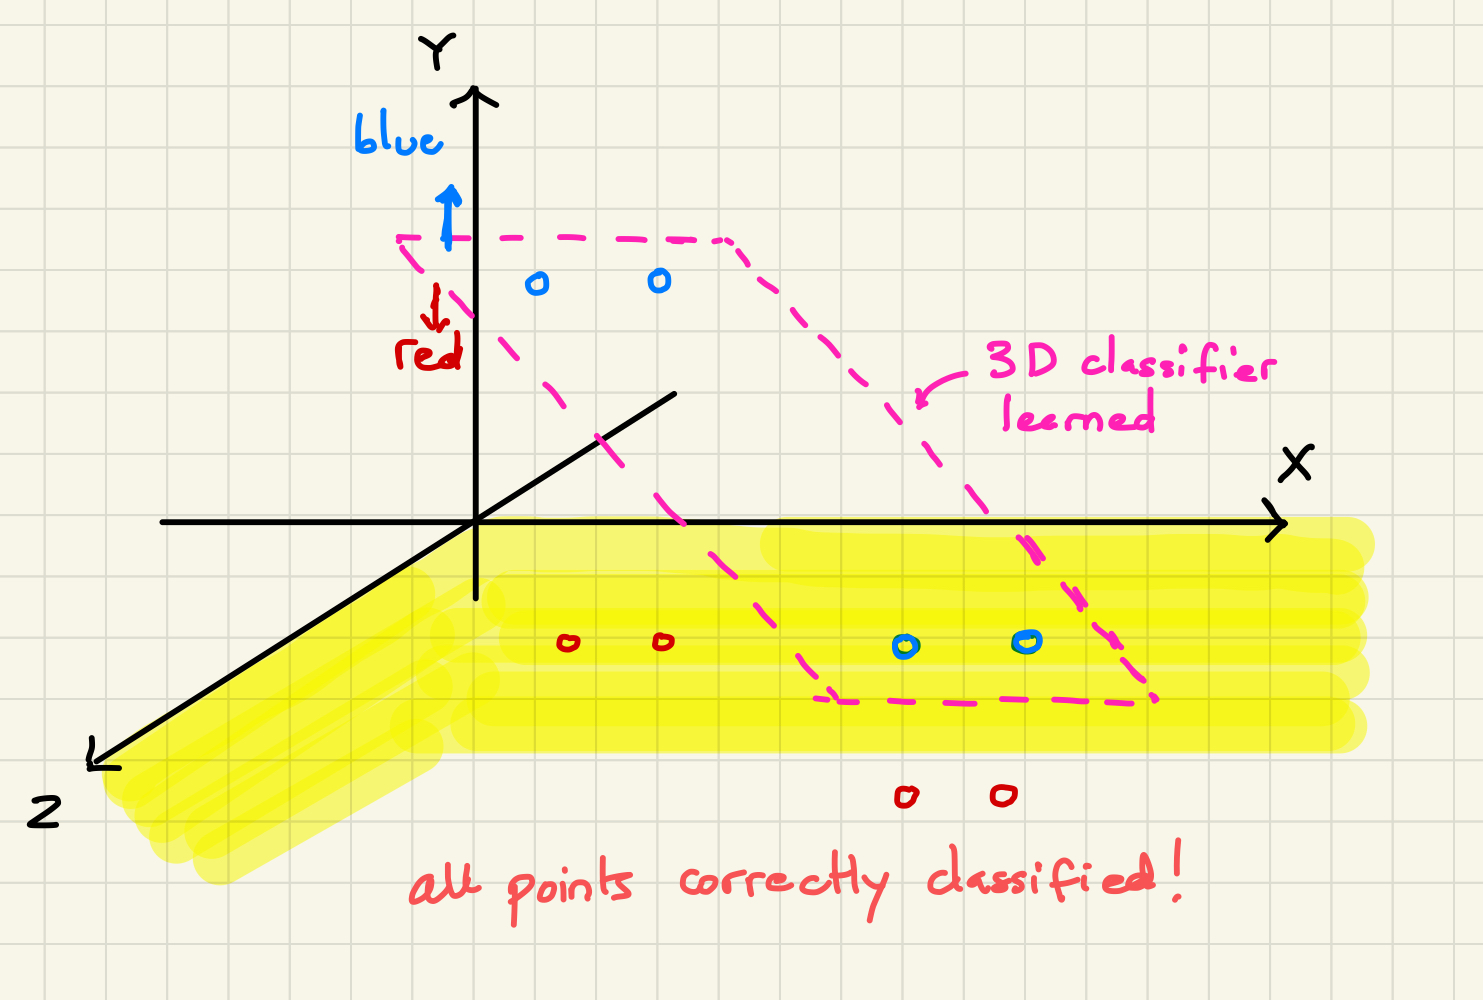 Y
blue
red
3D classifier
leerned
X
Z
all points correctly classified!